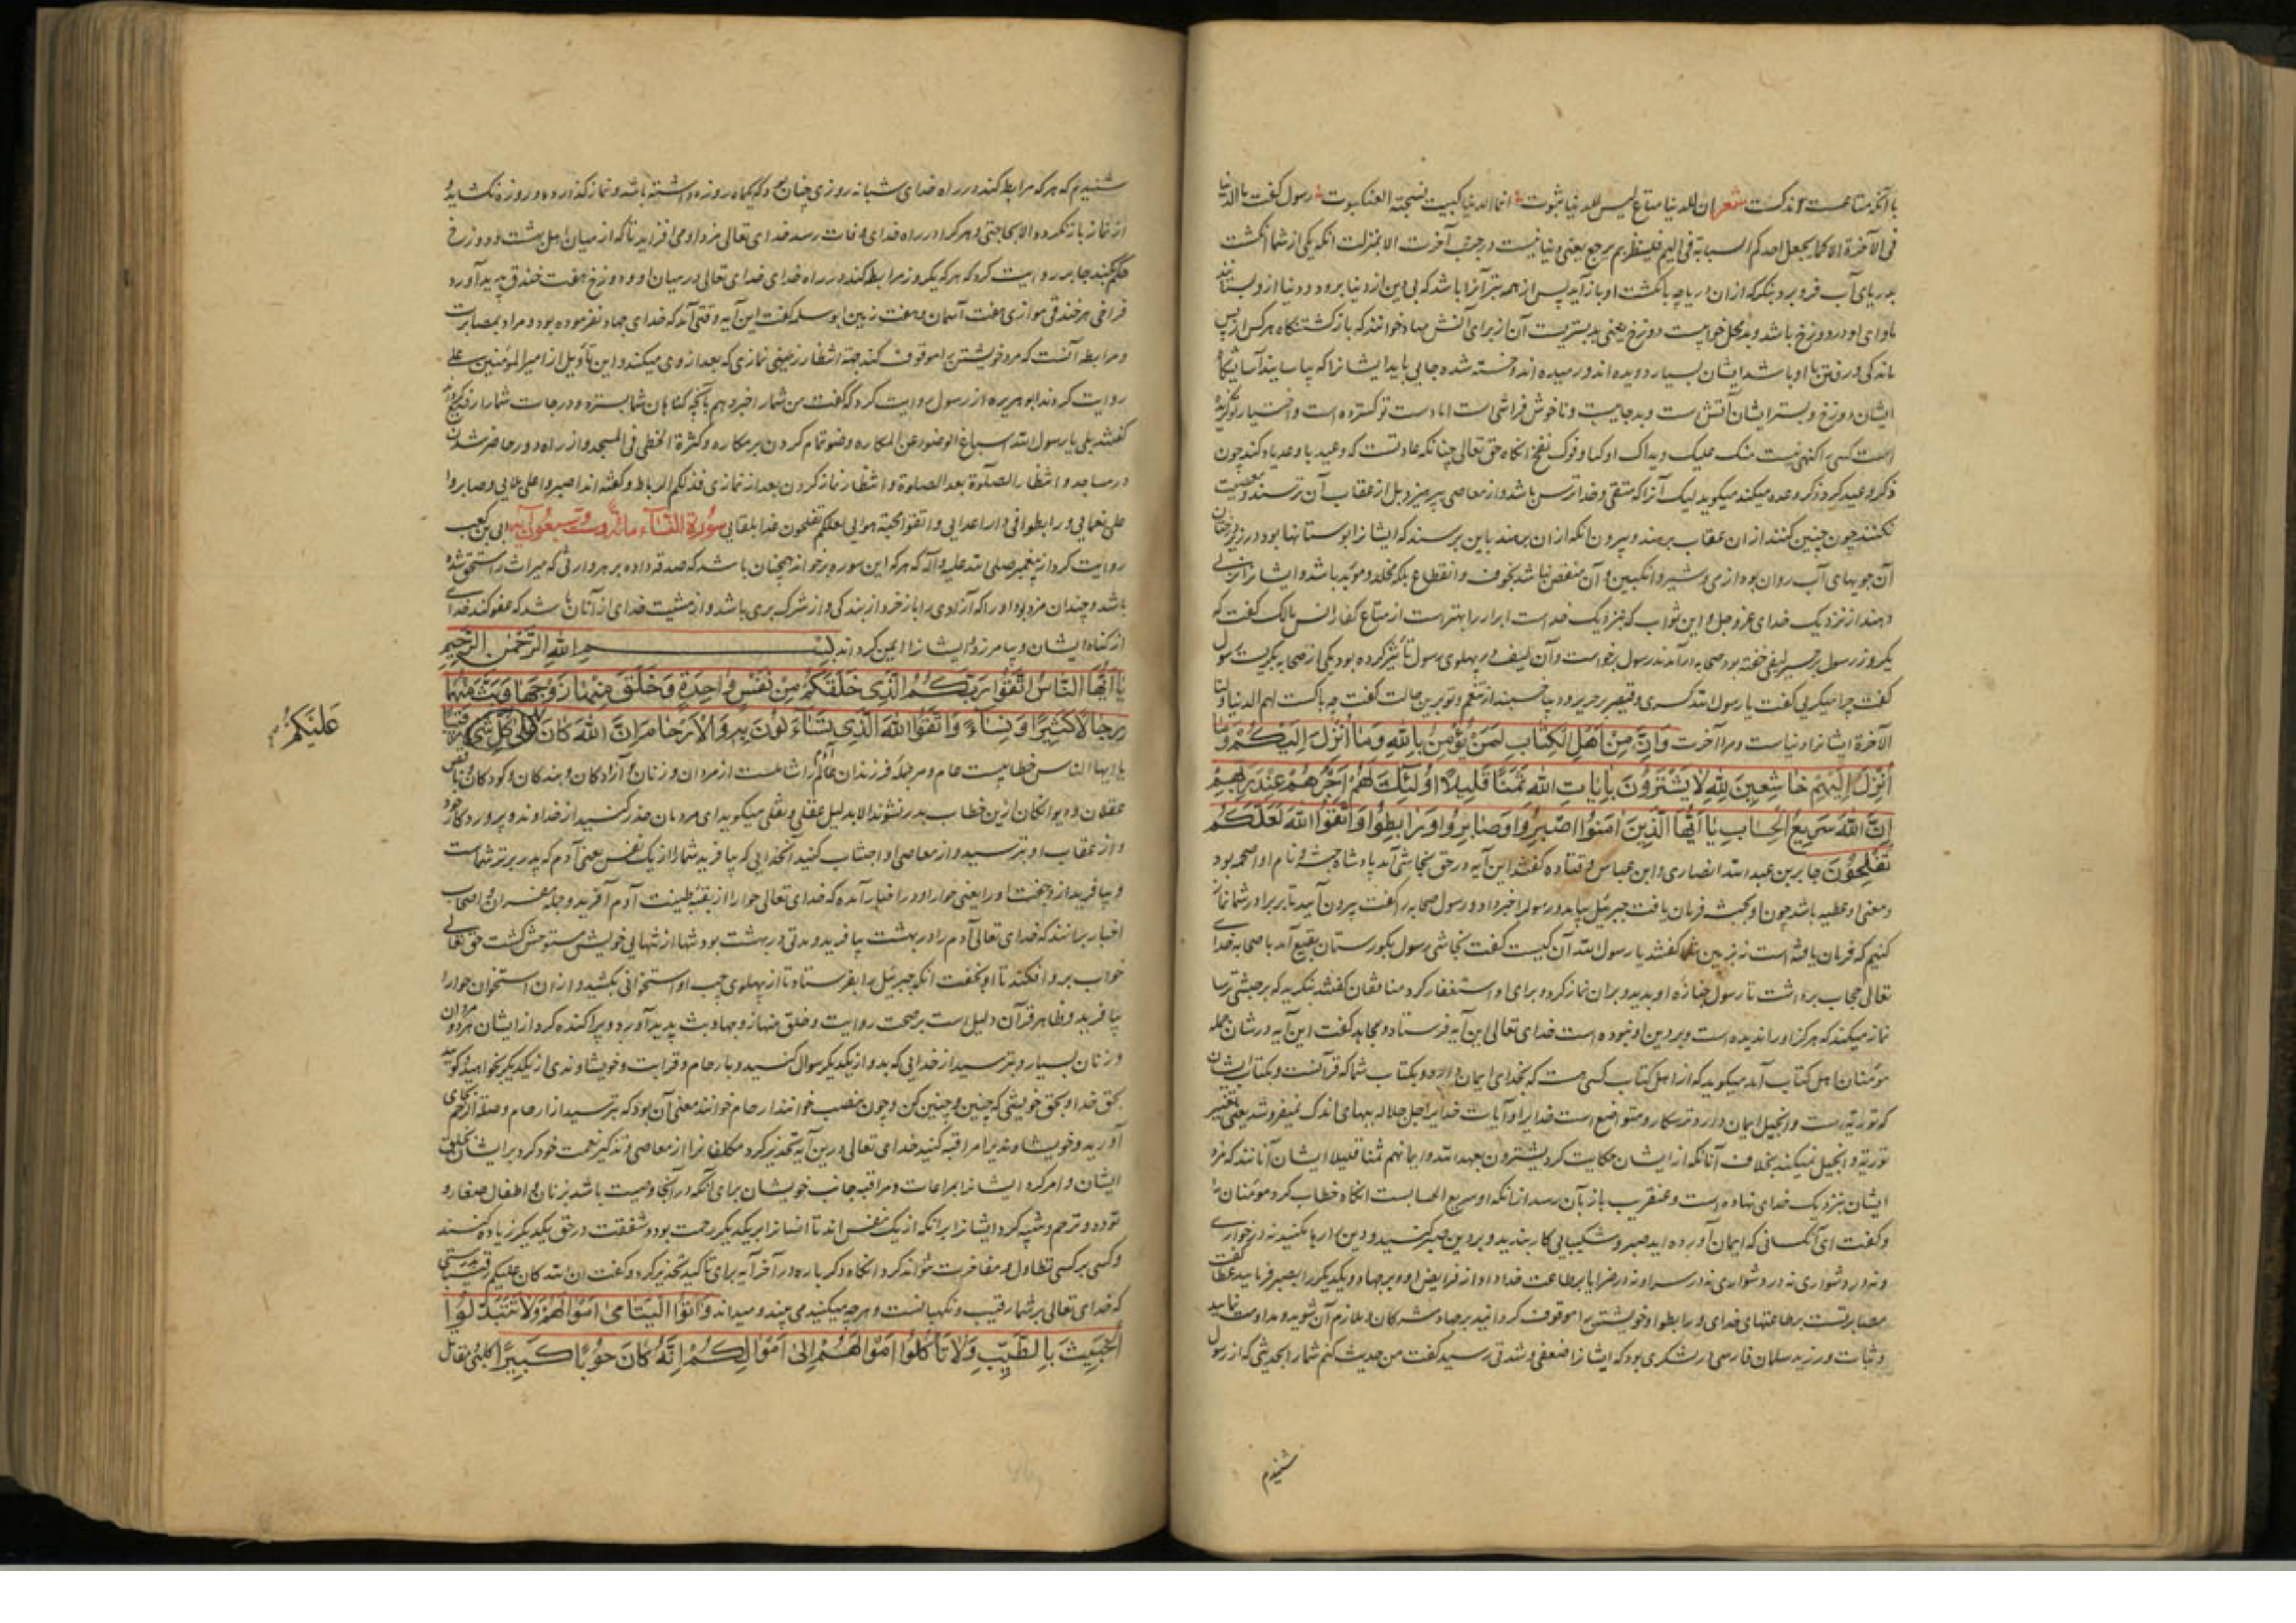 با آنکه متاعست اندکست شعر ان الدنیا متاع لیس للدنیا ثبوت انما الدنیا کبیت نسجته العنکبوت رسول گفت ما الدنیا
فی الآخرة الا کما یجعل احدکم السبابة فی الیم فلینظر بم یرجع یعنی دنیا نیست در جنب آخرت الا بمنزلت آنکه یکی از شما انگشت
بدریای آب فرو برد بنگرد که از آن دریا چه با انگشت او باز آید پس از همه بتر آنرا باشد که بی دین از دنیا برود و دنیا ازو بستانند
ماوای او در دوزخ باشد و بد محل خوابیست دوزخ یعنی بد بستریست آن از برای آتش مهاد خوانند که بازگشتنگاه هر کس از پس
ماندگی و رفتن با او باشد ایشان بسیار دویده اند و رمیده اند و خسته شده جایی باید ایشانرا که بیاسایند آسایشگاه
ایشان دوزخ و بستر ایشان آتش است و بد جاییست و ناخوش فراشی است اما دست تو گسترده است و اختیار تو گزیده
است کسی را گنهی نیست منک علیک ویداک اوکتا وفوک نفخ آنگاه حق تعالی چنانکه عادتست که وعید با وعد یاد کند چون
ذکر وعید کرد ذکر وعده میکند میگوید لیک آنرا که متقی و خداترس باشد و از معاصی بپرهیزد بل از عقاب آن ترسند و معصیت
نکنند چون چنین کنند از آن عقاب برهند و بیرون آنکه از آن برهند باین برسند که ایشانرا بوستانها بود در زیر درختان
آن جویهای آب روان بود از می و شیر و انگبین و آن منغص نباشد بخوف و انقطاع بلکه مخلد و موبد باشد و ایشانرا نزلی
دهند از نزدیک خدای عز و جل و این ثواب که بنزدیک خداست ابرار را بهتر است از متاع کفار انس مالک گفت که
یکروز رسول بر حصیر لیفی خفته بود صحابه درآمدند رسول برخواست و آن لیف در پهلوی رسول تأثیر کرده بود یکی از صحابه بگریست رسول
گفت چرا میگریی گفت یا رسول الله کسری و قیصر بر حریر و دیبا خسبند از تنعم و تو برین حالت گفت چه باکست لهم الدنیا ولنا
الآخرة ایشانرا دنیاست و مرا آخرت وَاِنَّ مِنْ اَهْلِ الْكِتَابِ لَمَنْ يُؤْمِنُ بِاللهِ وَمَا اُنْزِلَ اِلَيْكُمْ وَمَا
اُنْزِلَ اِلَيْهِمْ خَاشِعِينَ لِلّهِ لَا يَشْتَرُونَ بِاٰيَاتِ اللهِ ثَمَنًا قَلِيلًا اُولٰئِكَ لَهُمْ اَجْرُهُمْ عِنْدَ رَبِّهِمْ
اِنَّ اللهَ سَرِيعُ الْحِسَابِ يَا اَيُّهَا الَّذِينَ اٰمَنُوا اصْبِرُوا وَصَابِرُوا وَرَابِطُوا وَاتَّقُوا اللهَ لَعَلَّكُمْ
تُفْلِحُونَ جابر بن عبد الله انصاری و ابن عباس و قتاده گفتند این آیه در حق نجاشی آمد پادشاه حبشه و نام او اصحمه بود
و معنی او عطیه باشد چون او بحبشه فرمان یافت جبرئیل بیامد و رسول را خبر داد و رسول صحابه را گفت بیرون آیید تا بر برادر شما نماز
کنیم که فرمان یافته است نه بزمین شما گفتند یا رسول الله آن کیست گفت نجاشی رسول بگورستان بقیع آمد با صحابه خدای
تعالی حجاب برداشت تا رسول جنازه او بدید و بران نماز کرد و برای او استغفار کرد منافقان گفتند بنگرید که بر حبشی ترسا
نماز میکند که هرگز او را ندیده است و بر دین او نبوده است خدای تعالی این آیه فرستاد و مجاهد گفت این آیه در شان جمله
مومنان اهل کتاب آمد میگوید که از اهل کتاب کسی هست که بخدای ایمان دارد و بکتاب شما که قرآنست و بکتاب ایشان
که توریة است و انجیل ایمان دارد و ترسکار و متواضع است خدایرا و آیات خدایرا جل جلاله ببهای اندک نمیفروشد یعنی تغییر
توریة و انجیل نمیکند بخلاف آنانکه از ایشان حکایت کرد یشترون بعهد الله وایمانهم ثمنا قلیلا ایشان آنانند که مزد
ایشان بنزدیک خدای نهاده است و عنقریب باز بآن رسد از آنکه او سریع الحسابست آنگاه خطاب کرد مومنان را
و گفت ای آنکسانی که ایمان آورده اید صبر و شکیبایی کار بندید و بر دین صبر کنید و دین را رها مکنید نه در خواری
و نه در دشواری نه در سرا و نه در ضرا یا بر طاعت خدا و ادا از فرایض او و بر جهاد و یکدیگر را بصبر فرمایید عطا گفت
مصابرتست بر طاعتهای خدای و رابطوا و خویشتن را موقوف گردانید بر جهاد مشرکان و ملازم آن شوید و مداومت نمایید
و ثبات ورزید سلمان فارسی در لشکری بود که ایشانرا ضعفی و شدتی رسید گفت من حدیث کنم شما را بحدیثی که از رسول
شنیدم
شنیدم که هر که مرابطه کند در راه خدای شبانه روزی چنان بود که یکماه روزه داشته باشد و نماز گذارده و روزه نگشاید و
از نماز باز نگردد الا بحاجتی و هر که را در راه خدای وفات رسد خدای تعالی مزد او می افزاید تا که از میان اهل بهشت و دوزخ
حکم کند جابر روایت کرد که هر که یکروز مرابطه کند در راه خدای خدای تعالی در میان او و دوزخ هفت خندق پدید آورد
فراخی هر خندقی موازی هفت آسمان و هفت زمین ابو سلمه گفت این آیه وقتی آمد که خدای جهاد نفرموده بود و مراد بمصابرت
و مرابطه آنست که مرد خویشتن را موقوف کند جهة انتظار نمازی که بعد از وی میکند و این تأویل از امیر المومنین علی
روایت کردند ابو هریره از رسول روایت کرد که گفت من شما را خبر دهم بآنچه گناهان شما بسترد و درجات شما را رفیع گرداند
گفتند بلی یا رسول الله اسباغ الوضوء عن المکاره وضو تمام کردن بر مکاره و کثرة الخطی فی المسجد و از راه دور حاضر شدن
در مساجد و انتظار الصلوة بعد الصلوة و انتظار نماز کردن بعد از نمازی فذلکم الرباط و گفته اند اصبروا علی بلایی وصابروا
علی نعمایی ورابطوا فی دار اعدایی واتقوا محبة سوایی لعلکم تفلحون غدا بلقایی سورة النساء مائة وست سبعون آیه ابی بن کعب
روایت کرد از پیغمبر صلی الله علیه و آله که هر که این سوره برخواند همچنان باشد که صدقه داده بر هر وارثی که میراث را مستحق شده
باشد و چندان مزد بود او را که آزادی را باز خرد از بندگی و از شرک بری باشد و از مشیت خدای از آنان باشد که عفو کند خدای
از گناه ایشان و بیامرزد و ایشانرا ایمن گرداند بِسْمِ اللهِ الرَّحْمٰنِ الرَّحِيمِ
يَا اَيُّهَا النَّاسُ اتَّقُوا رَبَّكُمُ الَّذِي خَلَقَكُمْ مِنْ نَفْسٍ وَاحِدَةٍ وَخَلَقَ مِنْهَا زَوْجَهَا وَبَثَّ مِنْهُمَا
رِجَالًا كَثِيرًا وَنِسَاءً وَاتَّقُوا اللهَ الَّذِي تَسَاءَلُونَ بِهِ وَالْاَرْحَامَ اِنَّ اللهَ كَانَ عَلٰى كُلِّ شَيْءٍ رَقِيبًا
عَلَيْكُمْ
یا ایها الناس خطابیست عام و مر جمله فرزندان عالم را شاملست از مردان و زنان و آزادگان و بندگان و کودکان و ناقص
عقلان و دیوانگان ازین خطاب بدر نشوند الا بدلیل عقلی و نقلی میگوید ای مردمان حذر کنید از خداوند و پروردگار خود
و از عقاب او بترسید و از معاصی او اجتناب کنید آنخدایی که بیافرید شما را از یک نفس یعنی آدم که پدر برتر شماست
و بیافرید ازو جفت او را یعنی حوا را و در اخبار آمده که خدای تعالی حوا را از بقیه طینت آدم آفرید و جمله مفسران و اصحاب
اخبار برانند که خدای تعالی آدم را در بهشت بیافرید و مدتی در بهشت بود تنها از تنهایی خویش مستوحش گشت حق تعالی
خواب برو افکند تا او بخفت آنگه جبرئیل را بفرستاد تا از پهلوی چپ او استخوانی بکشید و از آن استخوان حوا را
بیافرید و ظاهر قرآن دلیل است بر صحت روایت وخلق منها زوجها وبث پدید آورد و پراکنده کرد از ایشان هر دو مردان
و زنان بسیار و بترسید از خدایی که بدو از یکدیگر سوال کنید و بارحام و قرابت و خویشاوندی از یکدیگر بخواهید و گویید
بحق خدا و بحق خویشی که چنین و چنین کن و چون بنصب خوانند ارحام خوانند معنی آن بود که بترسید از ارحام و صلة الرحم بجای
آورید و خویشاوندیرا مراقبه کنید خدای تعالی درین آیه تحذیر کرد مکلفانرا از معاصی و تذکیر نعمت خود کرد بر ایشان بخلق
ایشان و امر کرد ایشانرا بمراعات و مراقبه جانب خویشان برای آنکه در آنجا وصیت باشد بزنان و اطفال صغار و
تودد و ترحم و تنبیه کرد ایشانرا برانکه از یک نفس اند تا انسانرا بر یکدیگر رحمت بود و شفقت در حق یکدیگر زیاده کنند
و کسی بر کسی تطاول و مفاخرت نتواند کرد آنگاه دگر باره در آخر آیه برای تاکید تحذیر کرد و گفت ان الله کان علیکم رقیبا بدرستی
که خدای تعالی بر شما رقیب و نگهبانست و هر چه میکنید می بیند و میداند وَاٰتُوا الْيَتَامٰى اَمْوَالَهُمْ وَلَا تَتَبَدَّلُوا
الْخَبِيثَ بِالطَّيِّبِ وَلَا تَأْكُلُوا اَمْوَالَهُمْ اِلٰى اَمْوَالِكُمْ اِنَّهُ كَانَ حُوبًا كَبِيرًا کلبی و مقاتل